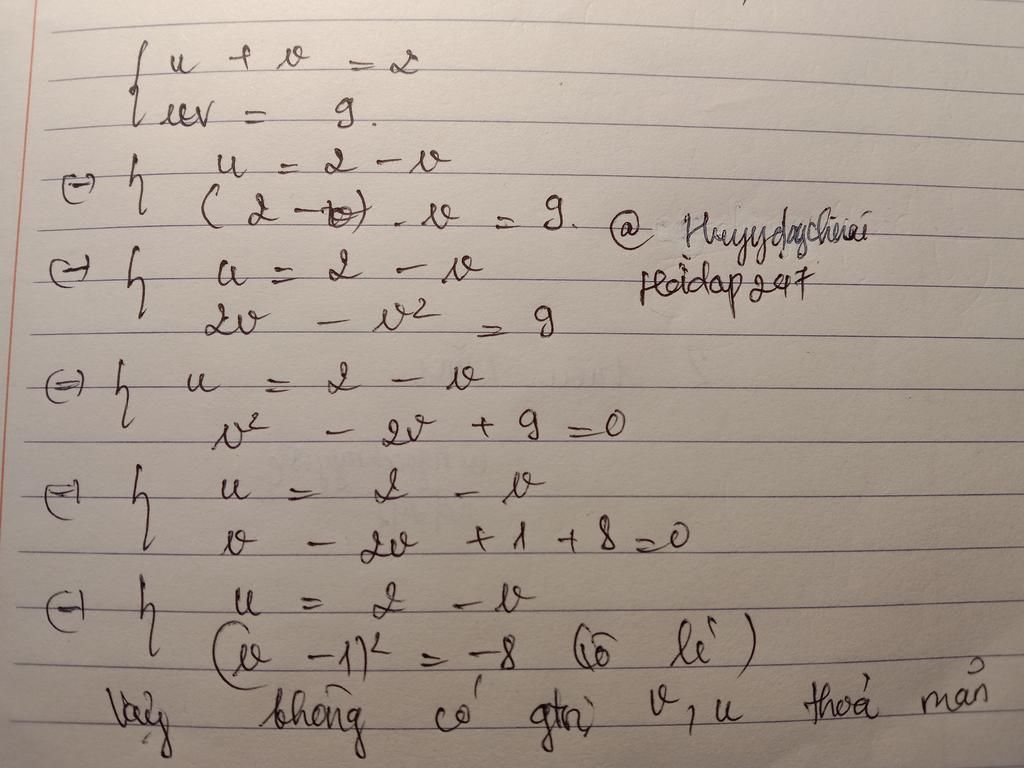 { u + v = 2
uv = 9.
(=) { u = 2 - v
(2 - v) . v = 9.
@ Huyydayhierai
Hoidap247
(=) { u = 2 - v
2v - v² = 9
(=) { u = 2 - v
v² - 2v + 9 = 0
(=) { u = 2 - v
v - 2v + 1 + 8 = 0
(=) { u = 2 - v
(v - 1)² = -8 (vô lí)
Vậy không có gtrị v, u thoả mãn